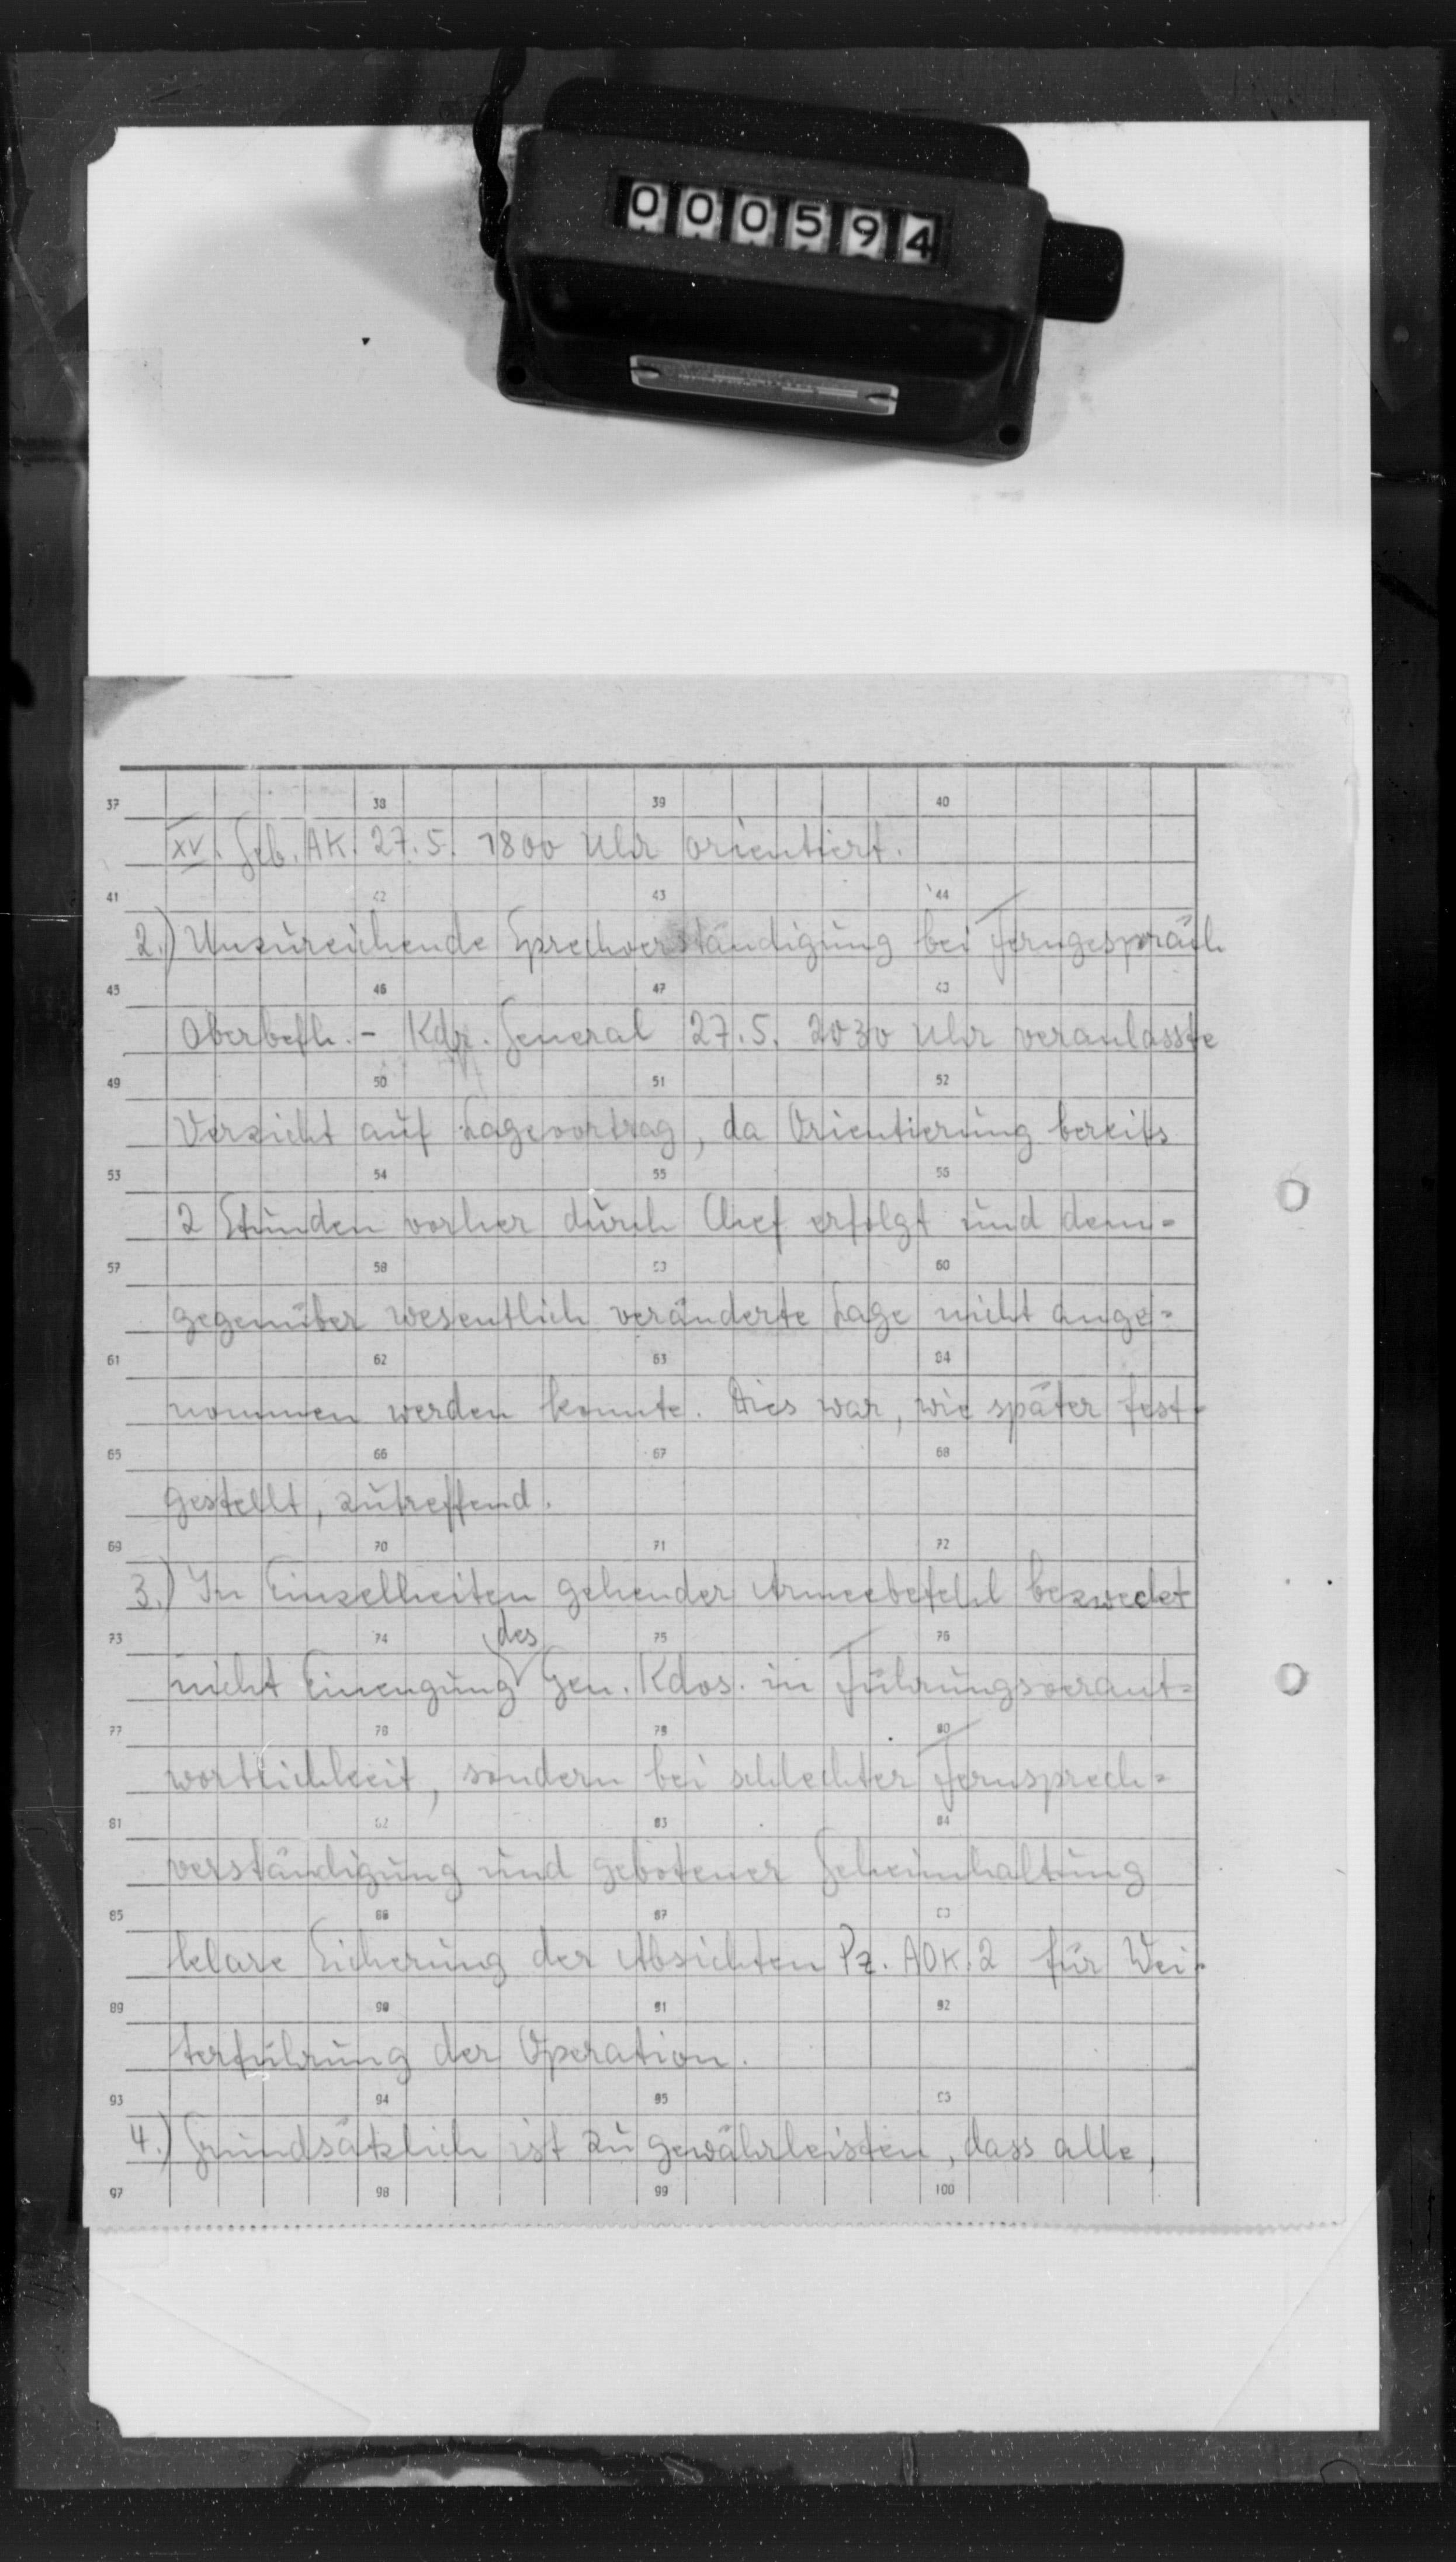 000594
37 38 39 40
XV. Geb. AK. 27.5. 1800 Uhr orientiert.
41 42 43 44
2.) Unzureichende Sprechverständigung bei Ferngespräch
45 46 47
Oberbefh. - Kdr. General 27.5. 2030 Uhr veranlasste
49 50 51 52
Verzicht auf Lagevortrag, da Orientierung bereits
53 54 55 56
2 Stunden vorher durch Chef erfolgt und dem=
57 58 60
gegenüber wesentlich veränderte Lage nicht ange=
61 62 63 64
nommen werden konnte. Dies war, wie später fest-
65 66 67 68
gestellt, zutreffend.
69 70 71 72
3.) In Einzelheiten gehender Armeebefehl bezwecket
73 74 des 75 76
nicht Einengung Gen. Kdos. in Führungsverant=
77 78 79 80
wortlichkeit, sondern bei schlechter Fernsprech=
81 82 83 84
verständigung und gebotener Geheimhaltung
85 86 87
klare Sicherung der Absichten Pz. AOK. 2 für Wei-
89 90 91 92
terführung der Operation.
93 94 95
4.) Grundsätzlich ist zu gewährleisten, dass alle,
97 98 99 100